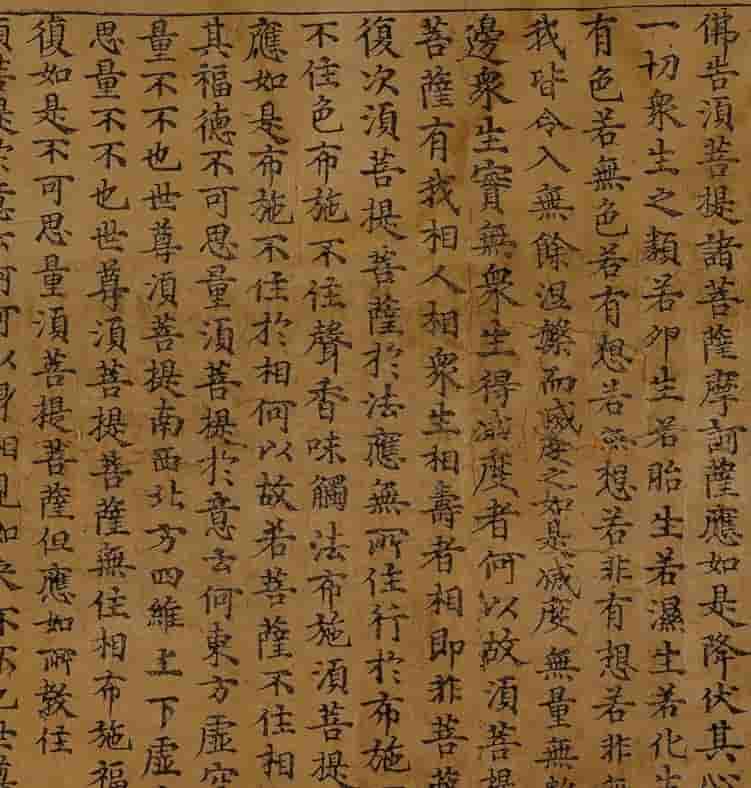 佛告湏菩提諸菩薩摩訶薩應如是降伏其心
一切衆生之類若卵生若胎生若濕生若化生
有色若無色若有想若無想若非有想若非無
我皆令入無餘涅槃而滅度之如是滅度無量無數
邊衆生實無衆生得滅度者何以故湏菩提
菩薩有我相人相衆生相壽者相即非菩薩
復次湏菩提菩薩於法應無所住行於布施
不住色布施不住聲香味觸法布施湏菩提
應如是布施不住於相何以故若菩薩不住相
其福德不可思量湏菩提於意云何東方虛空
量不不也世尊湏菩提南西北方四維上下虛
思量不不也世尊湏菩提菩薩無住相布施福
復如是不可思量湏菩提菩薩但應如所教住
湏菩提於意云何可以身相見如来不不也世尊